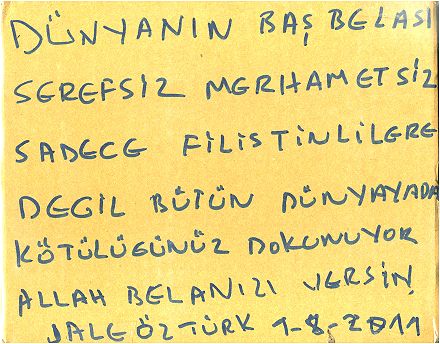 DÜNYANIN BAŞ BELASI
SEREFSİZ MERHAMETSİZ
SADECE FİLİSTİNLİLERE
DEGİL BÜTÜN DÜNYAYADA
KÖTÜLÜGÜNÜZ DOKUNUYOR
ALLAH BELANIZI VERSİN
JALE ÖZTÜRK 1-8-2011